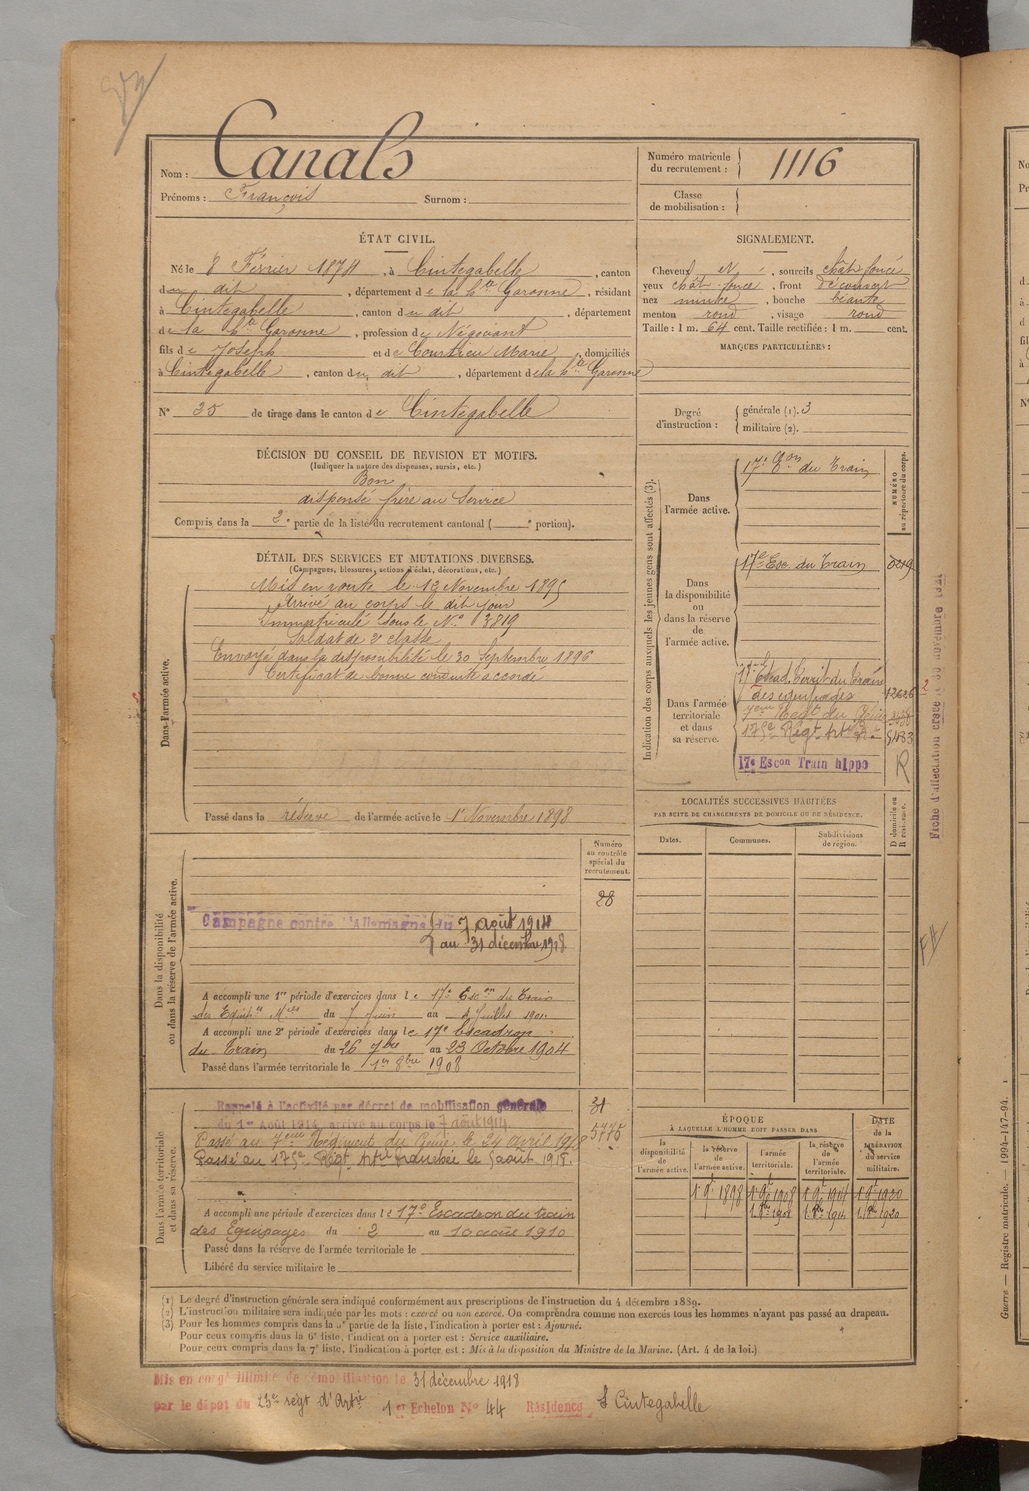 Nom : Canals
Prénoms : François Surnom :
Numéro matricule
du recrutement : 1116
Classe
de mobilisation :
ÉTAT CIVIL.
Né le 8 Février 1874, à Cintegabelle, canton
du dit, département de la Hte Garonne, résidant
à Cintegabelle, canton du dit, département
de la Hte Garonne, profession de Négociant
fils de Joseph et de Courtieu Marie, domiciliés
à Cintegabelle, canton du dit, département de la Hte Garonne
N° 35 de tirage dans le canton de Cintegabelle
SIGNALEMENT.
Cheveux N, sourcils chât. foncé
yeux chât. foncé, front découvert
nez mince, bouche béante
menton rond, visage rond
Taille : 1 m. 64 cent. Taille rectifiée : 1 m. cent.
MARQUES PARTICULIÈRES :
Degré
d'instruction :
générale (1). 3
militaire (2).
DÉCISION DU CONSEIL DE REVISION ET MOTIFS.
(Indiquer la nature des dispenses, sursis, etc.)
Bon
dispensé frère au Service
Compris dans la 2e partie de la liste du recrutement cantonal ( e portion).
DÉTAIL DES SERVICES ET MUTATIONS DIVERSES.
(Campagnes, blessures, actions d'éclat, décorations, etc.)
Dans l'armée active.
Mis en route le 13 Novembre 1895
Arrivé au corps le dit jour
Immatriculé sous le N° 3819
Soldat de 2e classe
Envoyé dans la disponibilité le 30 Septembre 1896
Certificat de bonne conduite accordé
Passé dans la réserve de l'armée active le 1er Novembre 1898
Indication des corps auxquels les jeunes gens sont affectés (3).
NUMÉRO
au répertoire du corps.
Dans
l'armée active.
17e Eon du Train
Dans
la disponibilité
ou
dans la réserve
de
l'armée active.
17e Esc. du Train 0219
Dans l'armée
territoriale
et dans
sa réserve.
17e Escad. Territ du Train
des équipages 12626
7ème Regt du Génie
175e Régt Artie 51083
17e Escon Train hippo R
Fiche d'affectation créée le novembre
LOCALITÉS SUCCESSIVES HABITÉES
PAR SUITE DE CHANGEMENTS DE DOMICILE OU DE RÉSIDENCE.
Dates. Communes. Subdivisions
de région.
D domicile ou
R résidence.
Dans la disponibilité
ou dans la réserve de l'armée active.
Numéro
au contrôle
spécial du
recrutement.
28
Campagne contre l'Allemagne du 7 août 1914
au 31 décembre 1918
A accompli une 1re période d'exercices dans le 17e Escon du Train
des Equipes Mres du 7 Juin au 4 Juillet 1901
A accompli une 2e période d'exercices dans le 17e Escadron
du Train du 26 7bre au 23 Octobre 1904
Passé dans l'armée territoriale le 1er 8bre 1908
Dans l'armée territoriale
et dans sa réserve.
Rappelé à l'activité par décret de mobilisation générale 31
du 1er Août 1914, arrivé au corps le 7 août 1914 5775
Passé au 7eme Régiment du Génie le 24 avril 1918
Passé au 175e Régt Artie le 5 août 1918.
A accompli une période d'exercices dans le 17e Escadron du train
des Equipages du 2 au 10 août 1910
Passé dans la réserve de l'armée territoriale le
Libéré du service militaire le
ÉPOQUE
À LAQUELLE L'HOMME DOIT PASSER DANS
la
disponibilité
de
l'armée active.
la réserve
de
l'armée active.
l'armée
territoriale.
la réserve
de
l'armée
territoriale.
DATE
de la
LIBÉRATION
du service
militaire.
1898 1908 1914 1920
1908 1914 1920
(1) Le degré d'instruction générale sera indiqué conformément aux prescriptions de l'instruction du 4 décembre 1889.
(2) L'instruction militaire sera indiquée par les mots : exercé ou non exercé. On comprendra comme non exercés tous les hommes n'ayant pas passé au drapeau.
(3) Pour les hommes compris dans la 5e partie de la liste, l'indication à porter est : Ajourné.
Pour ceux compris dans la 6e liste, l'indication à porter est : Service auxiliaire.
Pour ceux compris dans la 7e liste, l'indication à porter est : Mis à la disposition du Ministre de la Marine. (Art. 4 de la loi.)
Mis en congé illimité de démobilisation le 31 décembre 1918
par le dépôt du 23e régt d'Artie 1er Echelon No 44 Résidence Cintegabelle
Guerre — Registre matricule. — 1994-147-94.